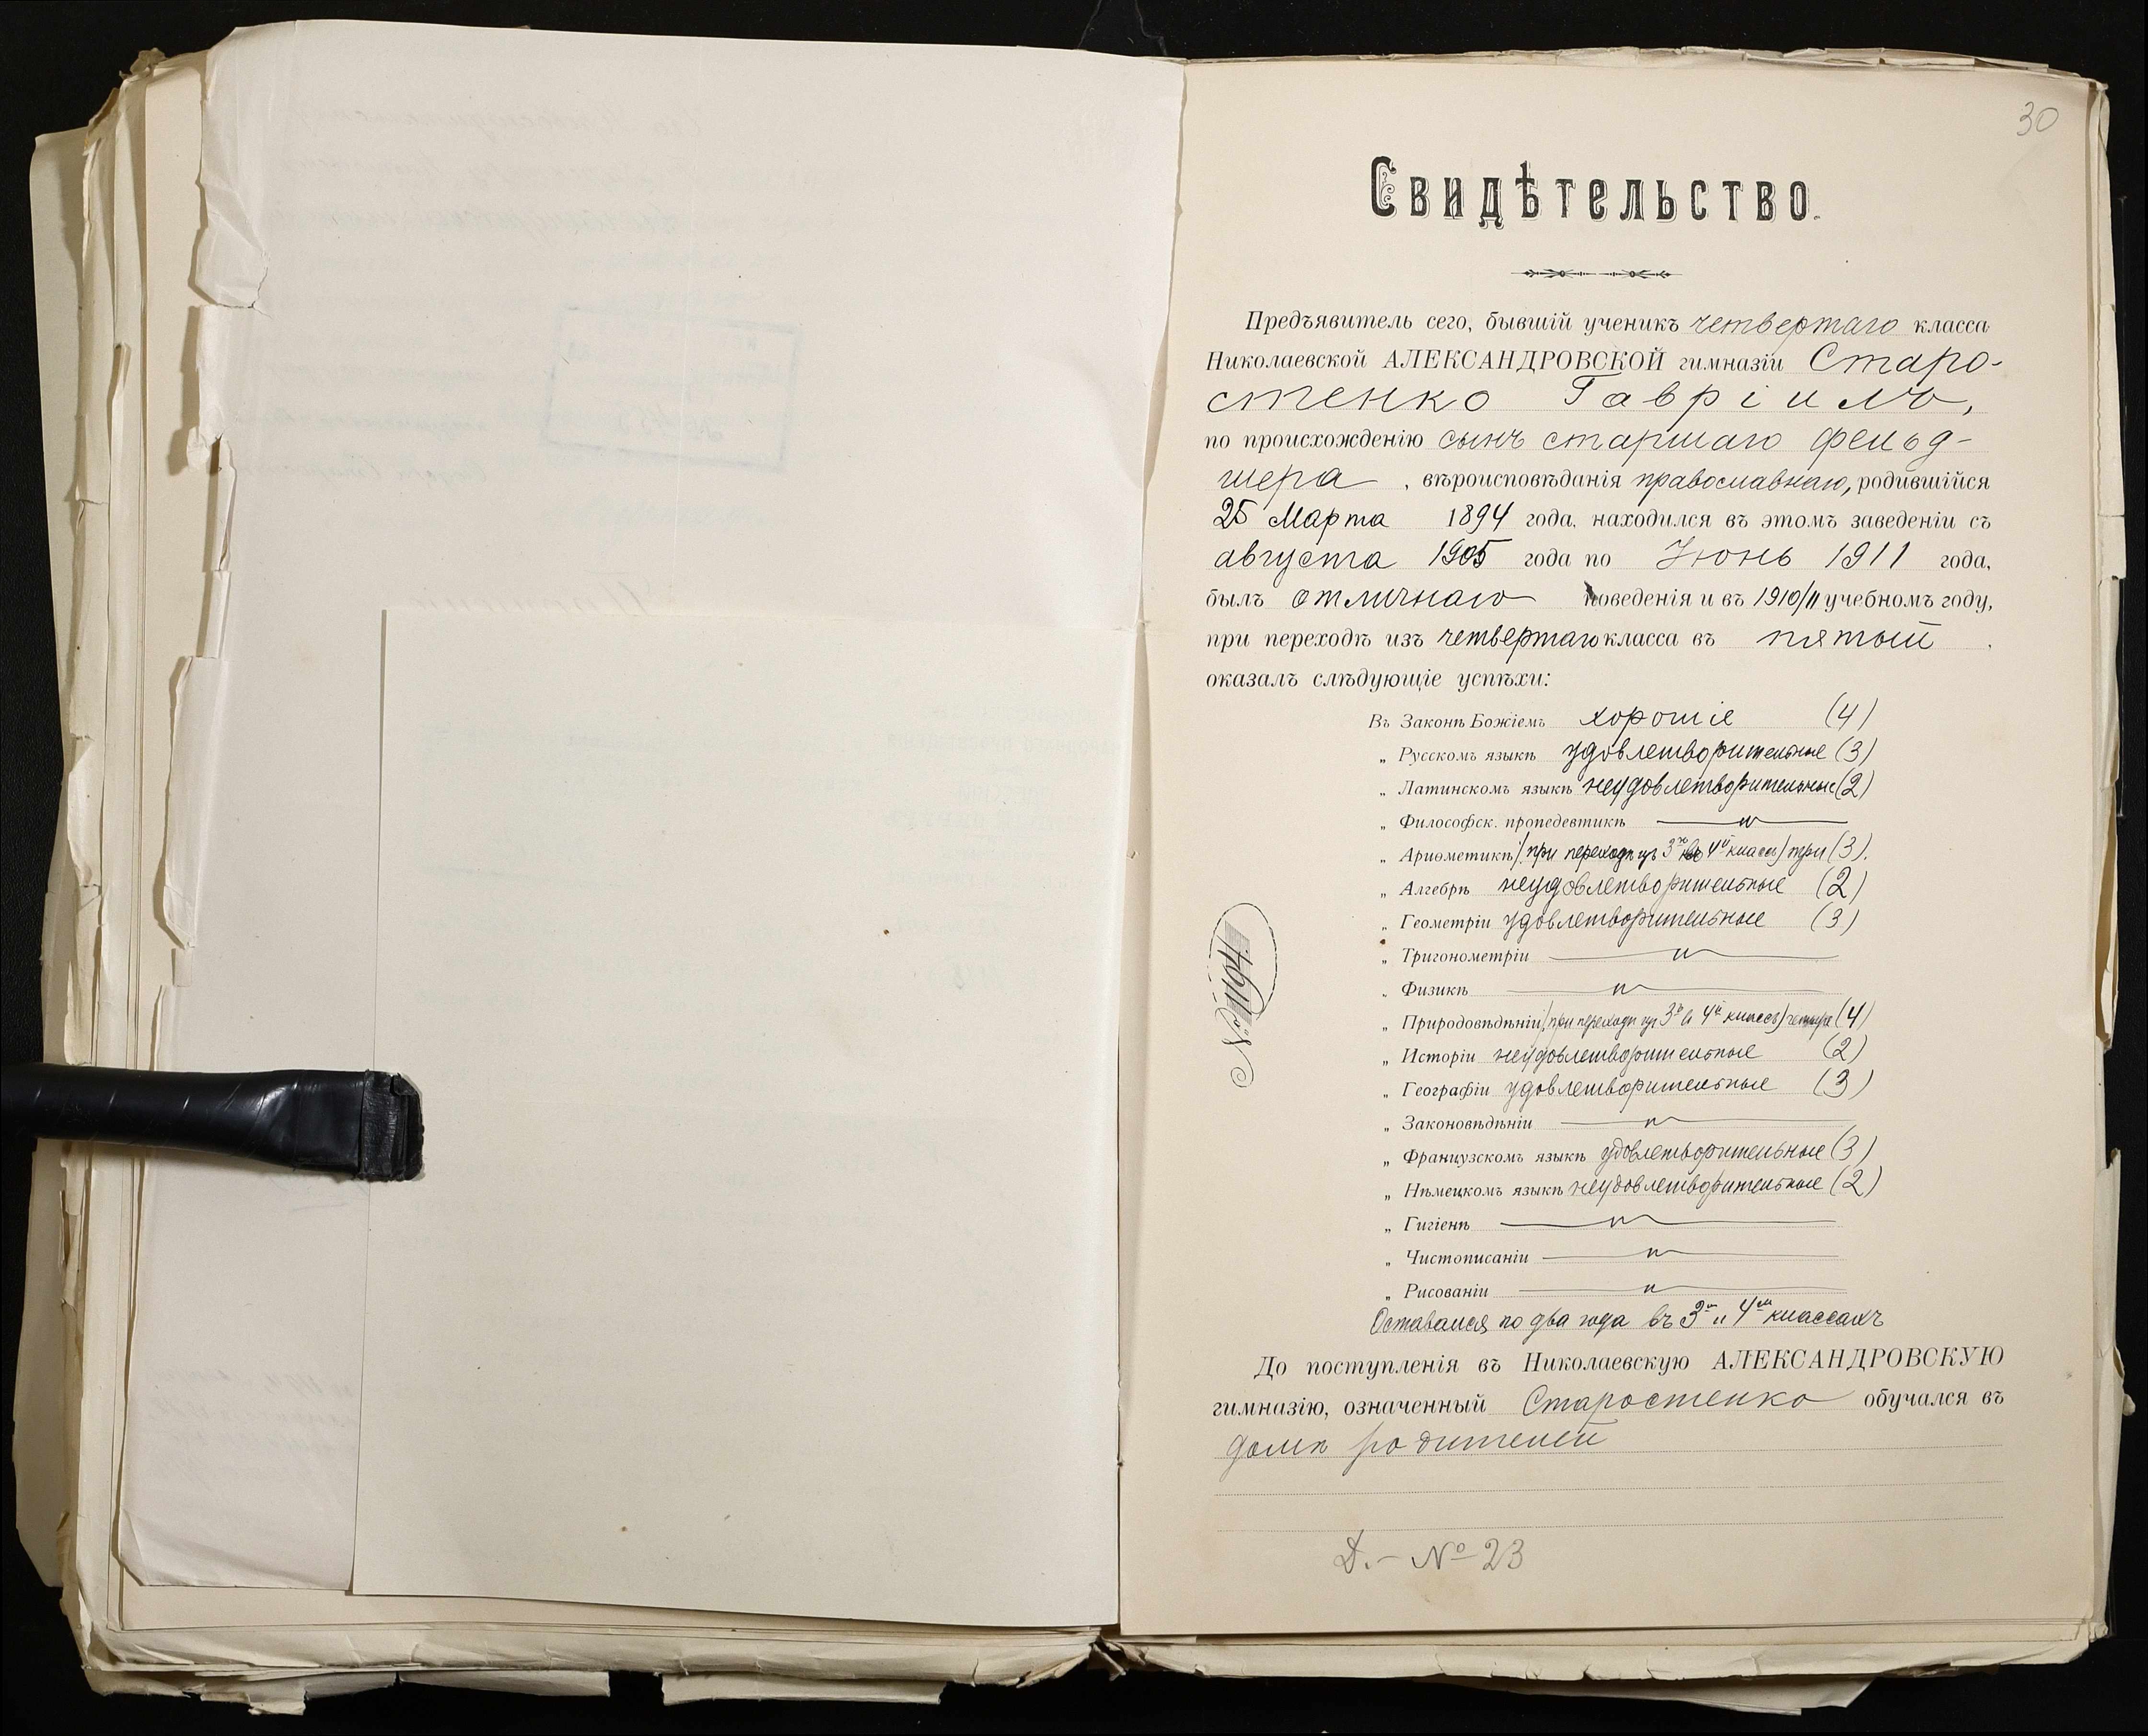 30
Свидѣтельство.
Предъявитель сего, бывшій ученикъ четвертаго класса
Николаевской АЛЕКСАНДРОВСКОЙ гимназіи Старо-
стенко Гавріилъ,
по происхожденію сынъ старшаго фельд-
шера, вѣроисповѣданія православнаго, родившійся
25 Марта 1894 года, находился въ этомъ заведеніи съ
августа 1905 года по Іюнь 1911 года,
былъ отличнаго поведенія и въ 1910/11 учебномъ году,
при переходѣ изъ четвертаго класса въ пятый.
оказалъ слѣдующіе успѣхи:
Въ Законѣ Божіемъ хорошіе (4)
„ Русскомъ языкѣ удовлетворительные (3)
„ Латинскомъ языкѣ неудовлетворительные (2)
„ Философск. пропедевтикѣ
„ Ариѳметикѣ (при переходѣ изъ 3го въ 4й классъ) три (3).
„ Алгебрѣ неудовлетворительные (2)
„ Геометріи удовлетворительные (3)
„ Тригонометріи
„ Физикѣ
„ Природовѣдѣніи (при переходѣ изъ 3го въ 4й классъ) четыре (4)
„ Исторіи неудовлетворительные (2)
„ Географіи удовлетворительные (3)
„ Законовѣдѣніи
„ Французскомъ языкѣ удовлетворительные (3)
„ Нѣмецкомъ языкѣ неудовлетворительные (2)
„ Гигіенѣ
„ Чистописаніи
„ Рисованіи
Оставался по два года въ 3м и 4мъ классахъ
№ 1194
До поступленія въ Николаевскую АЛЕКСАНДРОВСКУЮ
гимназію, означенный Старостенко обучался въ
домѣ родителей
Д. – № 23